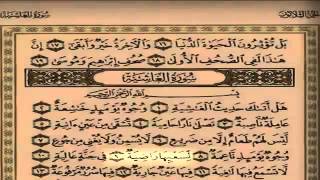 سورة الغاشية
الجزء الثلاثون
بَلْ تُؤْثِرُونَ الْحَيَوٰةَ الدُّنْيَا ١٦ وَالْآخِرَةُ خَيْرٌ وَأَبْقَىٰ ١٧ إِنَّ
هَٰذَا لَفِي الصُّحُفِ الْأُولَىٰ ١٨ صُحُفِ إِبْرَاهِيمَ وَمُوسَىٰ ١٩
سُورَةُ الْغَاشِيَةِ
بِسْمِ اللَّهِ الرَّحْمَٰنِ الرَّحِيمِ
هَلْ أَتَىٰكَ حَدِيثُ الْغَاشِيَةِ ١ وُجُوهٌ يَوْمَئِذٍ خَاشِعَةٌ ٢
عَامِلَةٌ نَاصِبَةٌ ٣ تَصْلَىٰ نَارًا حَامِيَةً ٤ تُسْقَىٰ مِنْ عَيْنٍ آنِيَةٍ ٥
لَيْسَ لَهُمْ طَعَامٌ إِلَّا مِنْ ضَرِيعٍ ٦ لَا يُسْمِنُ وَلَا يُغْنِي مِنْ جُوعٍ ٧
وُجُوهٌ يَوْمَئِذٍ نَاعِمَةٌ ٨ لِسَعْيِهَا رَاضِيَةٌ ٩ فِي جَنَّةٍ عَالِيَةٍ ١٠
لَا تَسْمَعُ فِيهَا لَاغِيَةً ١١ فِيهَا عَيْنٌ جَارِيَةٌ ١٢ فِيهَا سُرُرٌ مَرْفُوعَةٌ ١٣